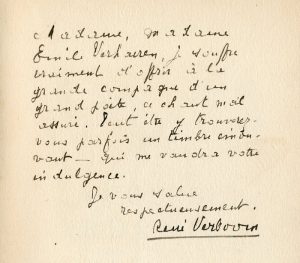 Madame, madame
Emile Verhaeren, je souffre
vraiment d'offrir à la
grande compagne d'un
grand poète, ce chant mal
assuré. Peut être y trouverez-
vous parfois un timbre émou-
vant — qui me vaudra votre
indulgence.
Je vous salue
respectueusement.
René Verboom